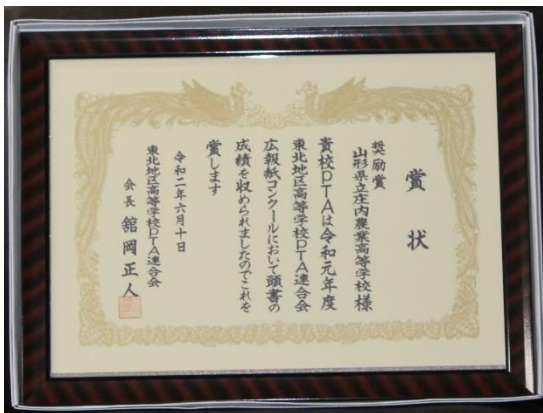 賞状
奨励賞
山形県立庄内農業高等学校様
貴校PTAは令和元年度
東北地区高等学校PTA連合会
広報紙コンクールにおいて頭書の
成績を収められましたのでこれを
賞します
令和二年六月十日
東北地区高等学校PTA連合会
会長 舘岡正人